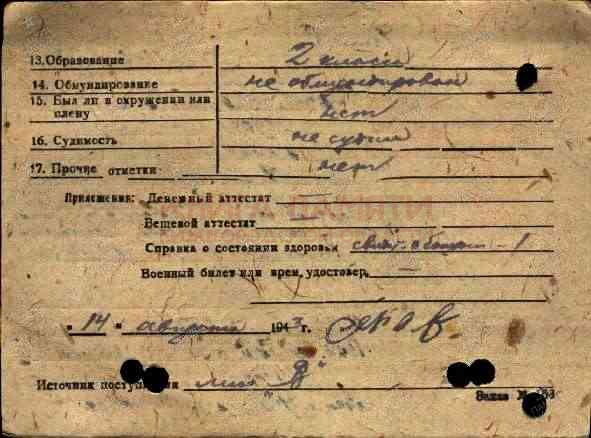 13. Образование 2 класса
14. Обмундирование не обмундирован
15. Был ли в окружении или плену нет
16. Судимость не судим
17. Прочие отметки нет
Приложения: Денежный аттестат
Вещевой аттестат
Справка о состоянии здоровья
— 1
Военный билет или врем. удостовер. —
"14" августа 1943 г.
Источник поступления
Заказ №
ПАМЯТИ